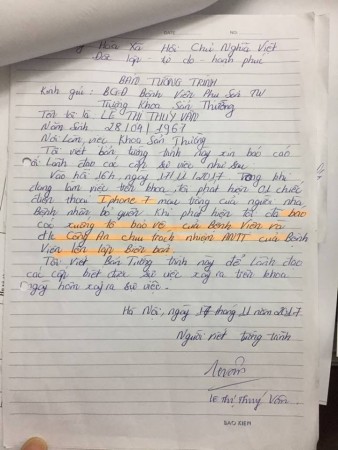 DATE NO.
Hòa Xã Hội Chủ Nghĩa Việt
Độc lập - tự do - hạnh phúc
BẢN TƯỜNG TRÌNH
Kính gửi: BGĐ Bệnh Viện Phụ Sản TW
Trưởng Khoa Sản Thường
Tên tôi là: LÊ THỊ THÚY VÂN
Năm Sinh 28/04/1967
Nơi Làm việc Khoa Sản Thường
Tôi viết bản tường trình này xin báo cáo
Lãnh đạo các cấp sự việc như sau
Vào hồi 16h, ngày 17/11/2017 Trong khi
đang làm việc trên khoa, tôi phát hiện 01 chiếc
điện thoại Iphone 7 màu trắng của người nhà
Bệnh nhân bỏ quên. Khi phát hiện tôi đã báo
cáo xuống tổ bảo vệ của Bệnh Viện và
đ/c Công An chịu trách nhiệm ANTT của Bệnh
Viện lên lập Biên bản
Tôi viết Bản Tường trình này để Lãnh đạo
các cấp biết được sự việc xảy ra trên khoa
ngày hôm xảy ra sự việc.
Hà Nội, ngày 17 tháng 11 năm 2017
Người viết tường trình
Lê Thị Thúy Vân
BAO XIEM